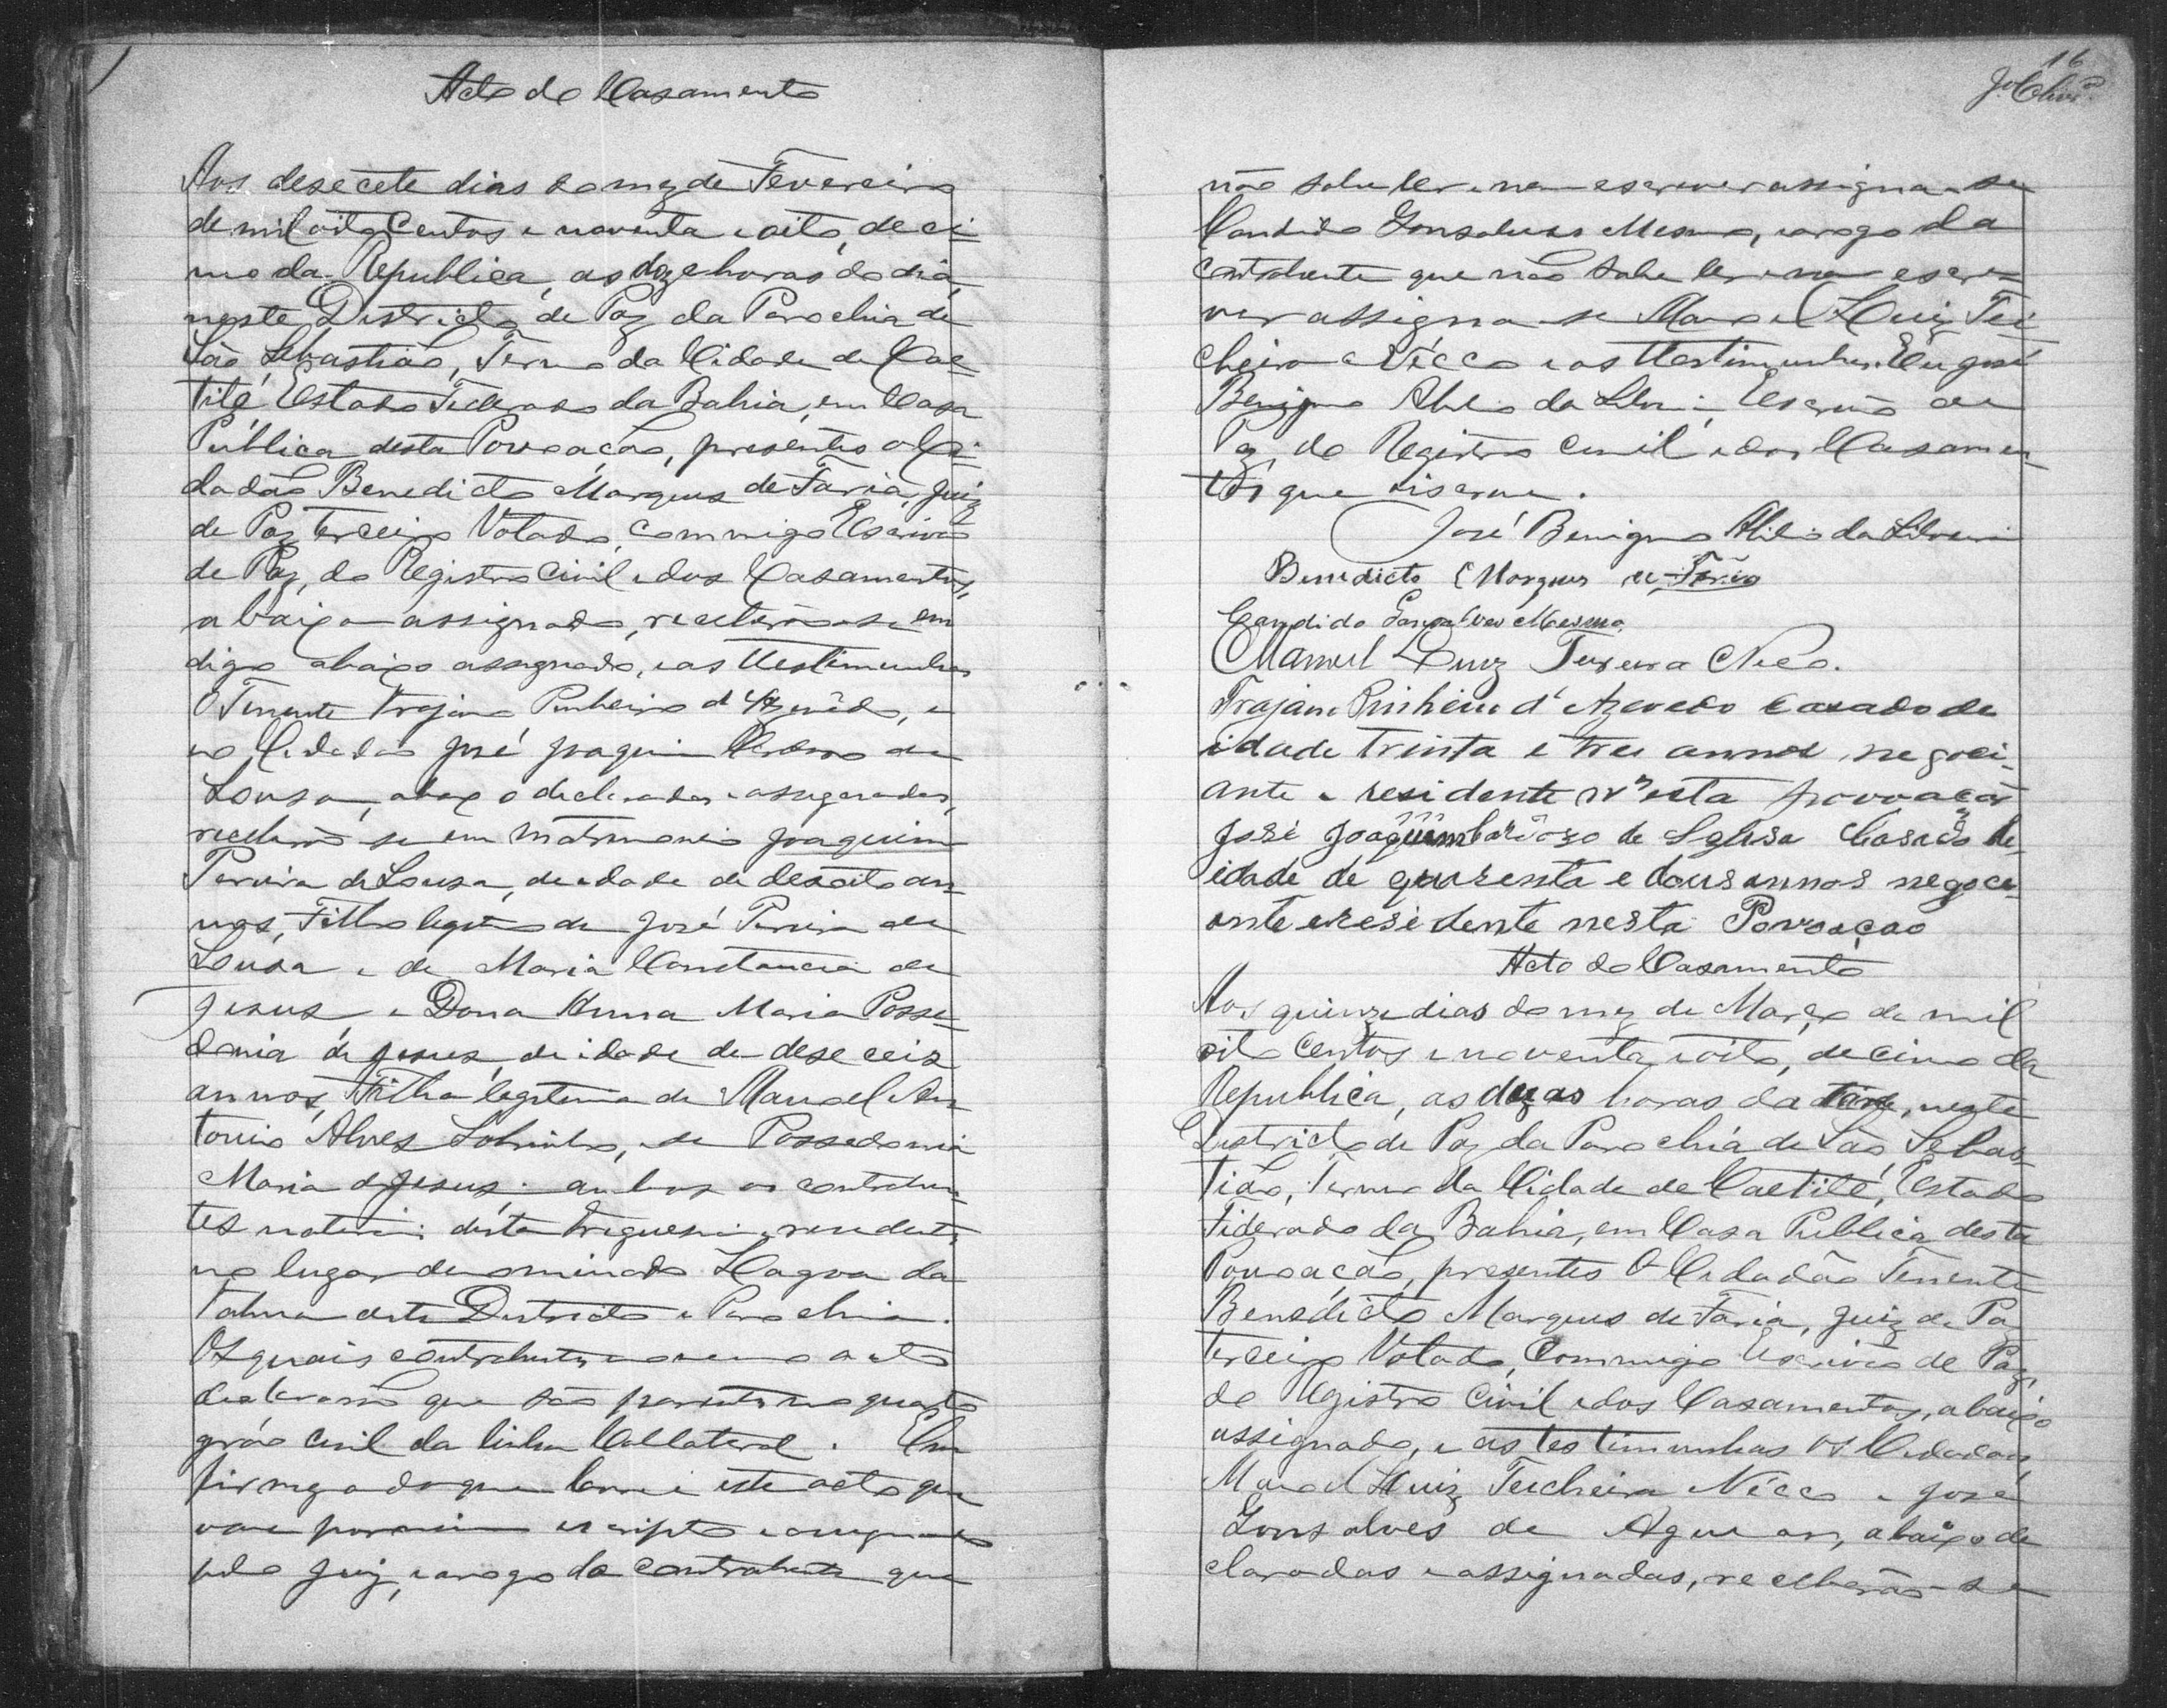 Acto do Casamento
Aos desecete dias do mez de Fevereiro
de mil oito Centos e noventa e oito, deci-
mo da Republica, as doze horas do dia,
neste Districto de Paz da Parochia de
São Sebastião, Termo da Cidade de Cae-
tité, Estado Federado da Bahia, em Casa
Publica desta Povoação, presentes o Ci-
dadão Benedicto Marques de Faria, Juiz
de Paz terceiro Votado, commigo Escrivão
de Paz, do Registro Civil e dos Casamentos,
abaixo assignado, receberão-se em
digo abaixo assignado, e as testimunhas
O Tenente Trajano Pinheiro d'Azevêdo, e
o Cidadão José Joaquim Cardoso de
Sousa, abaixo declarados e assignados,
receberão se em matrimonio Joaquim
Pereira de Sousa, de edade de desoito an-
nos, Filho legitimo de José Pereira de
Sousa e de Maria Constancia de
Jesus e Dona Anna Maria Posse-
donia de Jesus, de idade de dese ceis
annos, Filha legitima de Manoel An-
tonio Alves Sobrinho, e de Possedonia
Maria de Jesus; ambos os contrahen-
tes naturais desta Freguesia e residentes
no lugar denominado Lagoa da
deste Districto e Parochia.
Os quais contrahentes acto
declararão que são parentes no quarto
gráo Civil da linha Collateral. Em
firmeza do que lavrei este acto que
vae por mim escripto e assignado
pelo Juiz, e a rogo do contrahente que
16
não sabe ler e nem escrever assigna-se
Candido Gonsalves Mesmo, e a rogo da
contrahente que não sabe ler e nem escre-
ver assigna-se Manoel Luiz Tei
cheira Nécco e as testimunhas. Eu José
Benigno Abilio da Silveira Escrivão de
Paz, do Registro Civil e dos Casamen-
tos que escrevi.
José Benigno Abilio da Silveira
Benedicto Marques de Faria
Candido Gonsalves Mesmo
Manuel Luiz Teixeira Neco.
Trajano Pinheiro d'Azevedo Casado de
idade trinta e tres annos negoci-
ante e residente n'esta povoação
José Joaquim Cardoso de Sousa Casado de
idade de quarenta e dous annos negoce-
ante e residente nesta Povoação
Acto do Casamento
Aos quinze dias do mez de Março de mil
oito Centos e noventa e oito, decimo da
Republica, as duas horas da tarde, neste
Districto de Paz da Parochia de São Sebas-
tião, Termo da Cidade de Caetité, Estado
Federado da Bahia, em Casa Publica desta
Povoação, presentes O Cidadão Tenente
Benedicto Marques de Faria, Juiz de Paz
terceiro Votado, Commigo Escrivão de Paz,
do Registro Civil e dos Casamentos, abaixo
assignado, e as testimunhas os Cidadãos
Manoel Luiz Teicheira Nécco e José
Gonsalves de Aguiar, abaixo de
claradas e assignadas, receberão-se